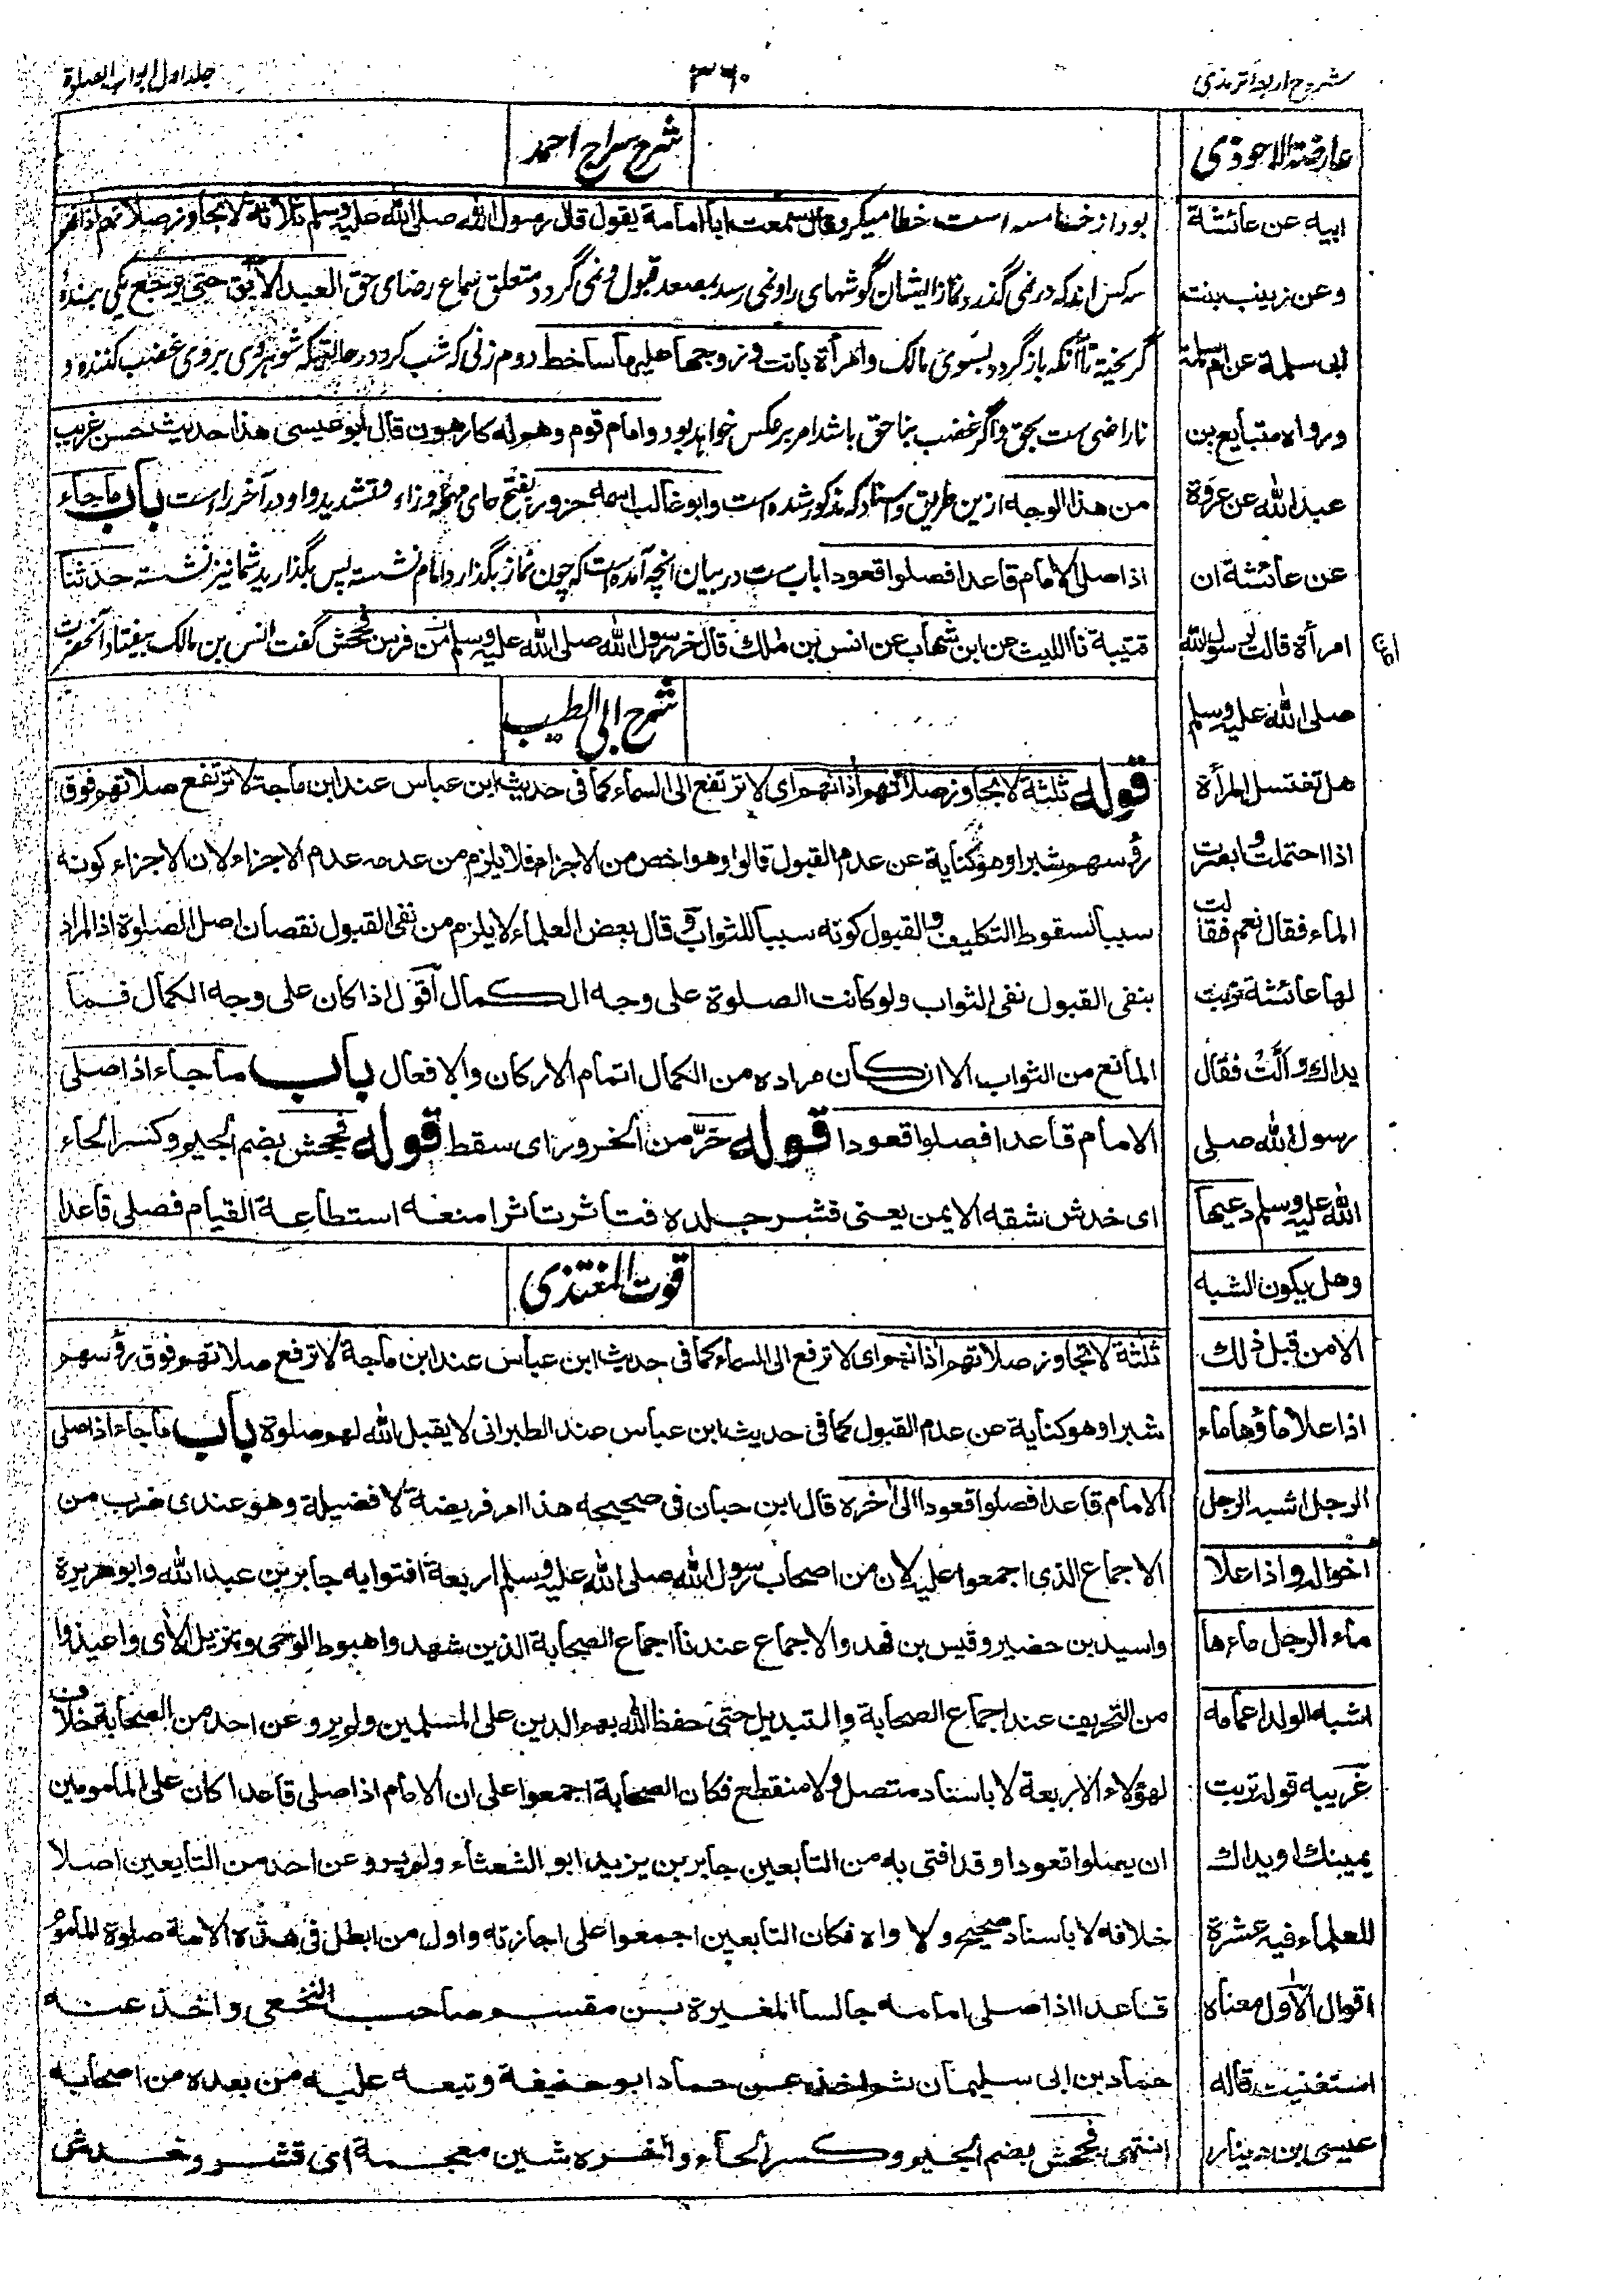 شروح اربعه ترمذی
۳۶۰
جلد اول ابواب الصلوة
عارضة الاحوذی
ابیه عن عائشة
وعن زینب بنت
ابی سلمة عن ام سلمة
ورواه متبایع بن
عبد الله عن عروة
عن عائشة ان
امرأة قالت لرسول الله
صلی الله علیه وسلم
هل تغتسل المرأة
اذا احتلمت وابصرت
الماء فقال نعم فقالت
لها عائشة تربت
یداك وألّت فقال
رسول الله صلی
الله علیه وسلم دعیها
وهل یکون الشبه
الا من قبل ذلك
اذا علا ماؤها ماء
الرجل اشبه الرجل
اخواله واذا علا
ماء الرجل ماءها
اشبه الولد اعمامه
غریبه قوله تربت
یمینك او یداك
للعلماء فیه عشرة
اقوال الاول معناه
استغنیت قاله
عیسی بن دینار
شرح سراج احمد
بود از خامسه است خطا میکرد قال سمعت ابا امامة یقول قال رسول الله صلی الله علیه وسلم ثلاثة لا تجاوز صلاتهم اذانهم
سه کس اند که در نمی گذرد نماز ایشان گوشهای را و نمی رسد بمصعد قبول و نمی گردد متعلق بسماع رضای حق العبد الآبق حتی یرجع یکی بنده
گریخته تا آنکه باز گردد بسوی مالک وامرأة باتت وزوجها علیها ساخط دوم زنی که شب کرد در حالتیکه شوهر وی بروی غضب کننده و
ناراضی ست بحق و اگر غضب بناحق باشد امر برعکس خواهد بود وامام قوم وهم له کارهون قال ابو عیسی هذا حدیث حسن غریب
من هذا الوجه ازین طریق و اسناد که مذکور شده است وابو غالب اسمه حزور بفتح حای مهمله وزاء وتشدید واو در آخر راست باب ما جاء
اذا صلی الامام قاعدا فصلوا قعودا باب ست در بیان انچه آمده است که چون نماز بگذارد امام نشسته پس بگذارید شما نیز نشسته حدثنا
قتیبة نا اللیث عن ابن شهاب عن انس بن ملك قال خر رسول الله صلی الله علیه وسلم من فرس فجحش گفت انس بن مالک بیفتاد آنحضرت
شرح ابی الطیب
قوله ثلثة لا تجاوز صلاتهم اذانهم ای لا ترتفع الی السماء کما فی حدیث ابن عباس عند ابن ماجة لا ترتفع صلاتهم فوق
رؤسهم شبرا وهو کنایة عن عدم القبول قالوا وهو اخص من الاجزاء فلا یلزم من عدمه عدم الاجزاء لان الاجزاء کونه
سببا لسقوط التکلیف والقبول کونه سببا للثواب وقال بعض العلماء لا یلزم من نفی القبول نقصان اصل الصلوة اذ المراد
بنفی القبول نفی الثواب ولو کانت الصلوة علی وجه الکمال اقول اذا کان علی وجه الکمال فما
المانع من الثواب الا ان کان مراده من الکمال اتمام الارکان والافعال باب ما جاء اذا صلی
الامام قاعدا فصلوا قعودا قوله خرّ من الخرور ای سقط قوله فجحش بضم الجیم وکسر الحاء
ای خدش شقه الایمن یعنی قشر جلده فتاثر تاثرا منعه استطاعة القیام فصلی قاعدا
قوت المغتذی
ثلثة لا تجاوز صلاتهم اذانهم ای لا ترفع الی السماء کما فی حدیث ابن عباس عند ابن ماجة لا ترفع صلاتهم فوق رؤسهم
شبرا وهو کنایة عن عدم القبول کما فی حدیث ابن عباس عند الطبرانی لا یقبل الله لهم صلوة باب ما جاء اذا صلی
الامام قاعدا فصلوا قعودا الی اخره قال ابن حبان فی صحیحه هذا امر فریضة لا فضیلة وهو عندی ضرب من
الاجماع الذی اجمعوا علیه لان من اصحاب رسول الله صلی الله علیه وسلم اربعة افتوا به جابر بن عبد الله وابو هریرة
واسید بن حضیر وقیس بن فهد والاجماع عندنا اجماع الصحابة الذین شهدوا هبوط الوحی وتنزیل الآی واعیذوا
من التحریف عند اجماع الصحابة والتبدیل حتی حفظ الله بهم الدین علی المسلمین ولم یرو عن احد من الصحابة خلاف
لهؤلاء الاربعة لا باسناد متصل ولا منقطع فکان الصحابة اجمعوا علی ان الامام اذا صلی قاعدا کان علی المأمومین
ان یصلوا قعودا وقد افتی به من التابعین جابر بن یزید ابو الشعثاء ولم یرو عن احد من التابعین اصلا
خلافه لا باسناد صحیح ولا واه فکان التابعین اجمعوا علی اجازته واول من ابطل فی هذه الامة صلوة المأموم
قاعدا اذا صلی امامه جالسا المغیرة بن مقسم صاحب النخعی واخذ عنه
حماد بن ابی سلیمان ثم اخذه عن حماد ابو حنیفة وتبعه علیه من بعده من اصحابه
انتهی فجحش بضم الجیم وکسر الحاء واخره شین معجمة ای قشر وخدش